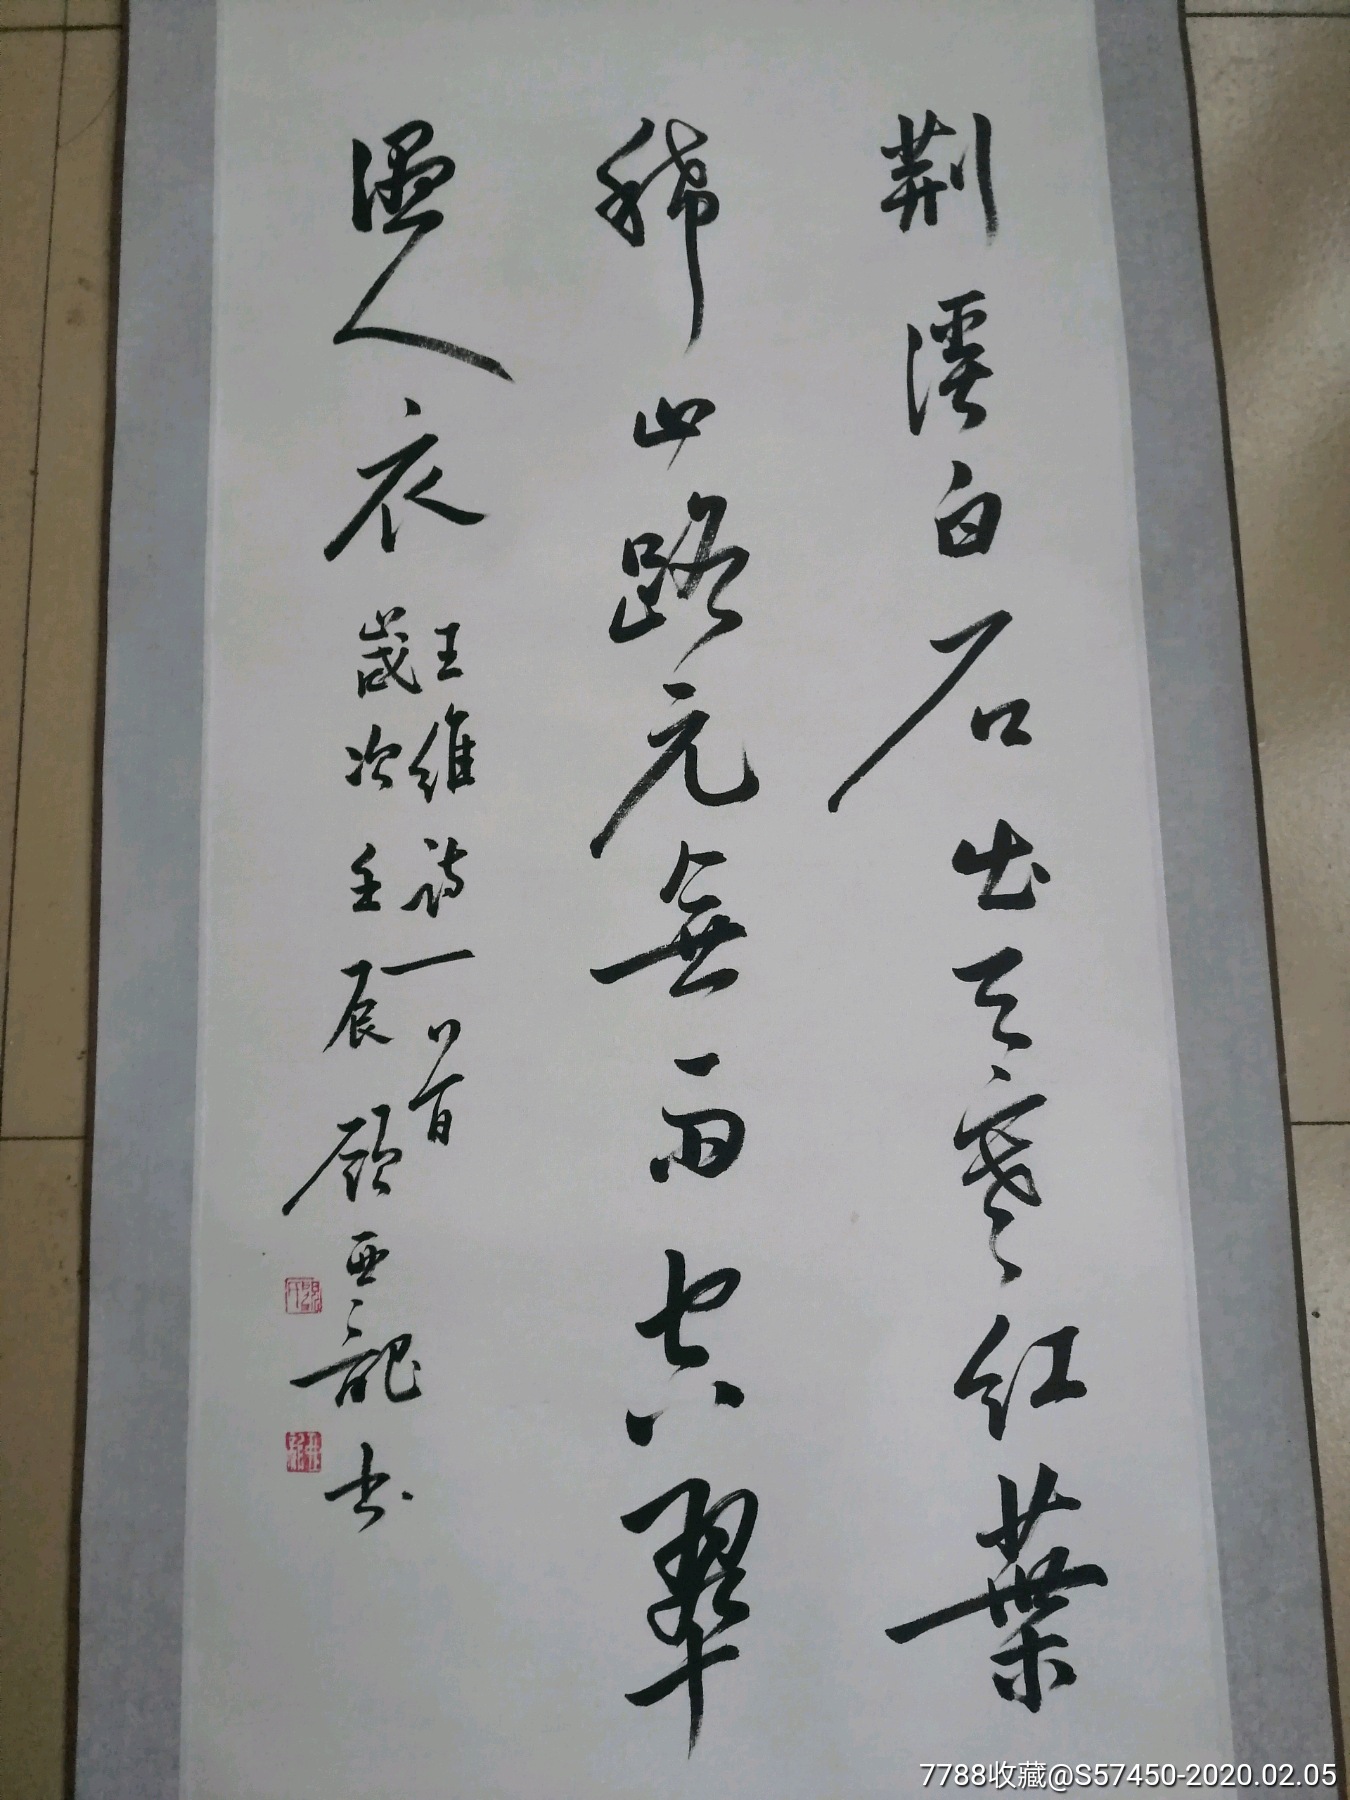 荆溪白石出天寒红葉
稀山路元無雨空翠
濕人衣
王維詩一首
歲次壬辰顾亚龍书
7788收藏@S57450-2020.02.05